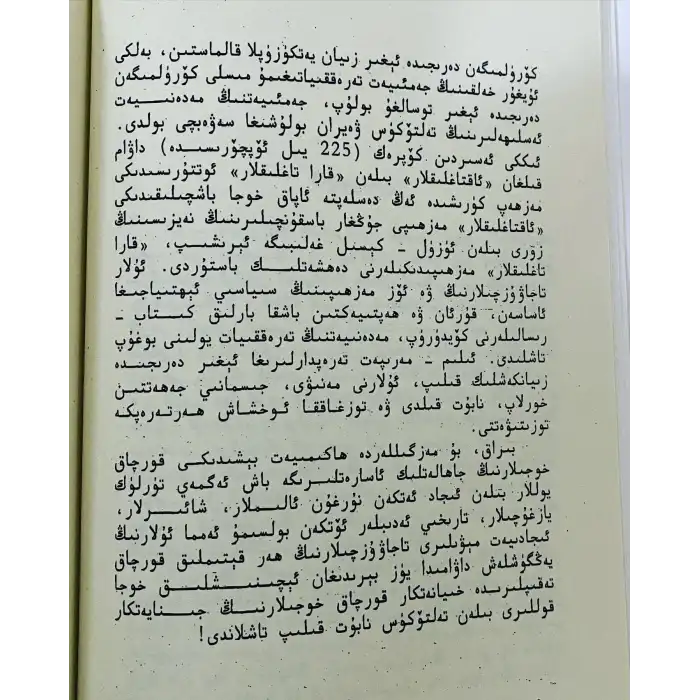 كۆرۈلمىگەن دەرىجىدە ئېغىر زىيان يەتكۈزۈپلا قالماستىن، بەلكى
ئۇيغۇر خەلقىنىڭ جەمئىيەت تەرەققىياتىغىمۇ مىسلى كۆرۈلمىگەن
دەرىجىدە ئېغىر توسالغۇ بولۇپ، جەمئىيەتنىڭ مەدەنىيەت
ئەسلىھەلىرىنىڭ تەلتۆكۈس ۋەيران بولۇشىغا سەۋەبچى بولدى.
ئىككى ئەسىردىن كۆپرەك (225 يىل ئۆپچۆرىسىدە) داۋام
قىلغان «ئاقتاغلىقلار» بىلەن «قارا تاغلىقلار» ئوتتۇرىسىدىكى
مەزھەپ كۈرىشىدە ئەڭ دەسلەپتە ئاپاق خوجا باشچىلىقىدىكى
«ئاقتاغلىقلار» مەزھىپى جۇڭغار باسقۇنچىلىرىنىڭ نەيزىسىنىڭ
زورى بىلەن ئۈزۈل - كېسىل غەلىبىگە ئېرىشىپ، «قارا
تاغلىقلار» مەزھىپىدىكىلەرنى دەھشەتلىك باستۇردى. ئۇلار
تاجاۋۇزچىلارنىڭ ۋە ئۆز مەزھىپىنىڭ سىياسىي ئېھتىياجىغا
ئاساسەن، قۇرئان ۋە ھەپتىيەكتىن باشقا بارلىق كىتاب -
رىسالىلەرنى كۆيدۈرۈپ، مەدەنىيەتنىڭ تەرەققىيات يولىنى بوغۇپ
تاشلىدى. ئىلىم - مەرىپەت تەرەپدارلىرىغا ئېغىر دەرىجىدە
زىيانكەشلىك قىلىپ، ئۇلارنى مەنىۋى، جىسمانىي جەھەتتىن
خورلاپ، نابۇت قىلدى ۋە توزغاققا ئوخشاش ھەرتەرەپكە
توزىتىۋەتتى.
بىراق، بۇ مەزگىللەردە ھاكىمىيەت بېشىدىكى قورچاق
خوجىلارنىڭ جاھالەتلىك ئاسارەتلىرىگە باش ئەگمەي تۈرلۈك
يوللار بىلەن ئىجاد ئەتكەن نۇرغۇن ئالىملار، شائىرلار،
يازغۇچىلار، تارىخىي ئەدىبلەر ئۆتكەن بولسىمۇ ئەمما ئۇلارنىڭ
ئىجادىيەت مېۋىلىرى تاجاۋۇزچىلارنىڭ ھەر قېتىملىق قورچاق
يەڭگۈشلەش داۋامىدا يۈز بېرىدىغان ئىچىنىشلىق خوجا
تەقىپلىرىدە خىيانەتكار قورچاق خوجىلارنىڭ جىنايەتكار
قوللىرى بىلەن تەلتۆكۈس نابۇت قىلىپ تاشلاندى!